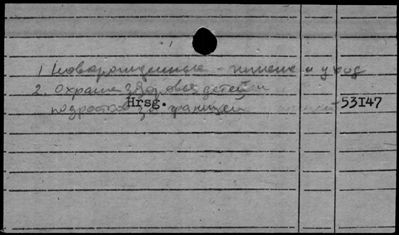 1 Новорожденные - гигиена и уход
2. Охрана здоровья детей и
подростков за границей
Hrsg. 53I47